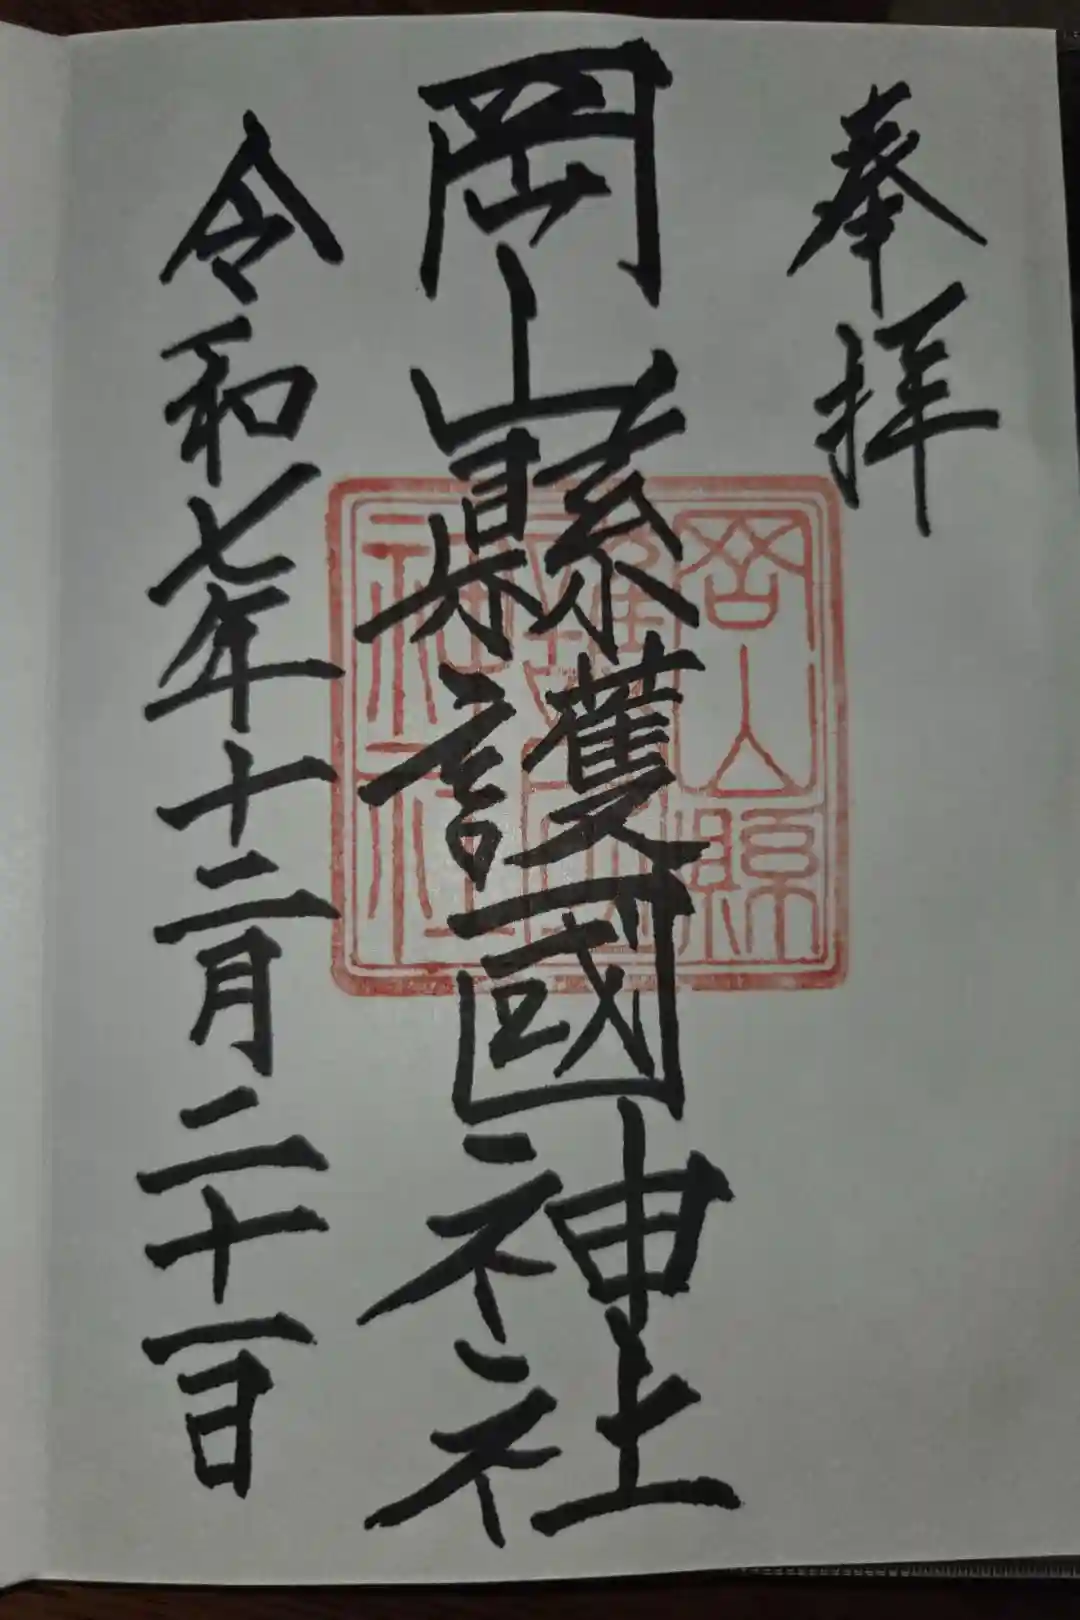 奉拝
岡山縣護國神社
岡山縣護國神社
令和七年十二月二十一日